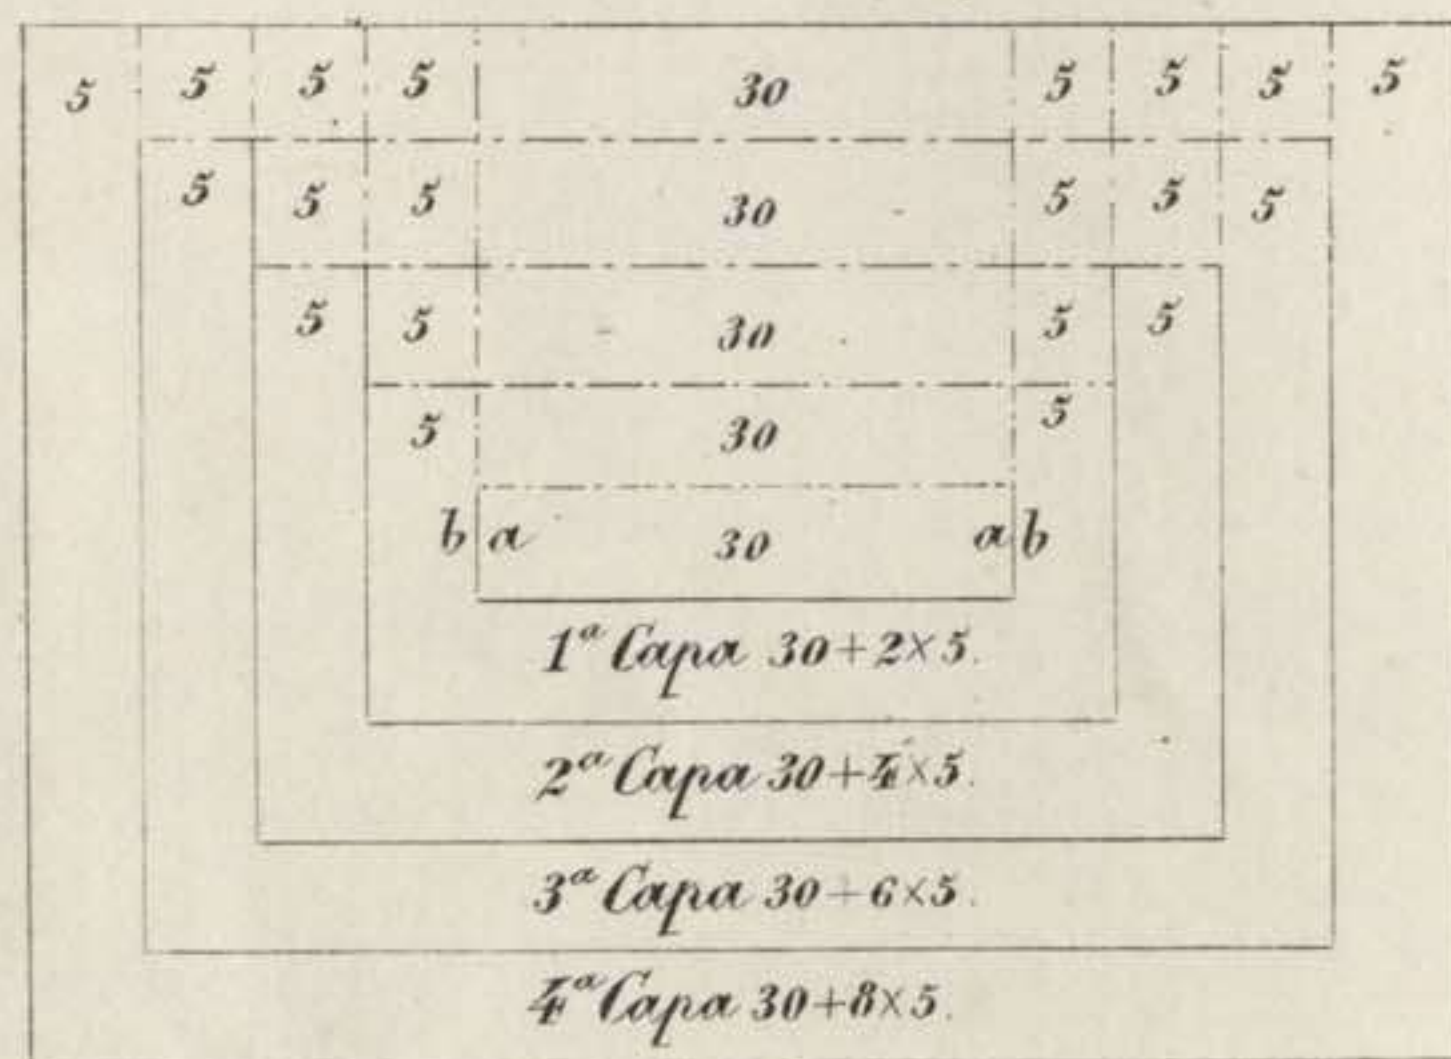 5 5 5 5 30 5 5 5 5
5 5 5 30 5 5 5
5 5 30 5 5
5 30 5
b a 30 a b
1ª Capa 30+2×5.
2ª Capa 30+4×5.
3ª Capa 30+6×5.
4ª Capa 30+8×5.